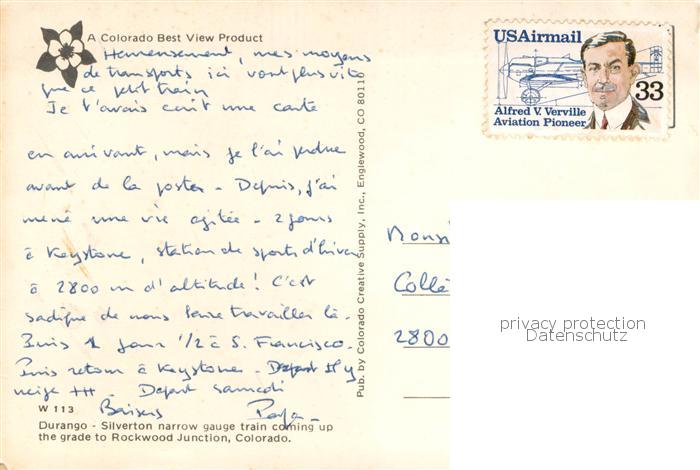 A Colorado Best View Product
Heureusement, mes moyens
de transports ici vont plus vite
que ce petit train
Je t'avais écrit une carte
en arrivant, mais je l'ai perdue
avant de la poster - Depuis, j'ai
mené une vie agitée - 2 jours
à Keystone, station de sports d'hiver
à 2800 m d'altitude ! C'est
sadique de nous faire travailler là -
Puis 1 jour 1/2 à S. Francisco -
Puis retour à Keystone - Il y
neige +++ - Depart samedi
Baisers Papa -
W 113
Durango - Silverton narrow gauge train coming up
the grade to Rockwood Junction, Colorado.
Pub. by Colorado Creative Supply, Inc., Englewood, CO 80110
USAirmail
33
Alfred V. Verville
Aviation Pioneer
Monsi
Collè
2800
privacy protection
Datenschutz